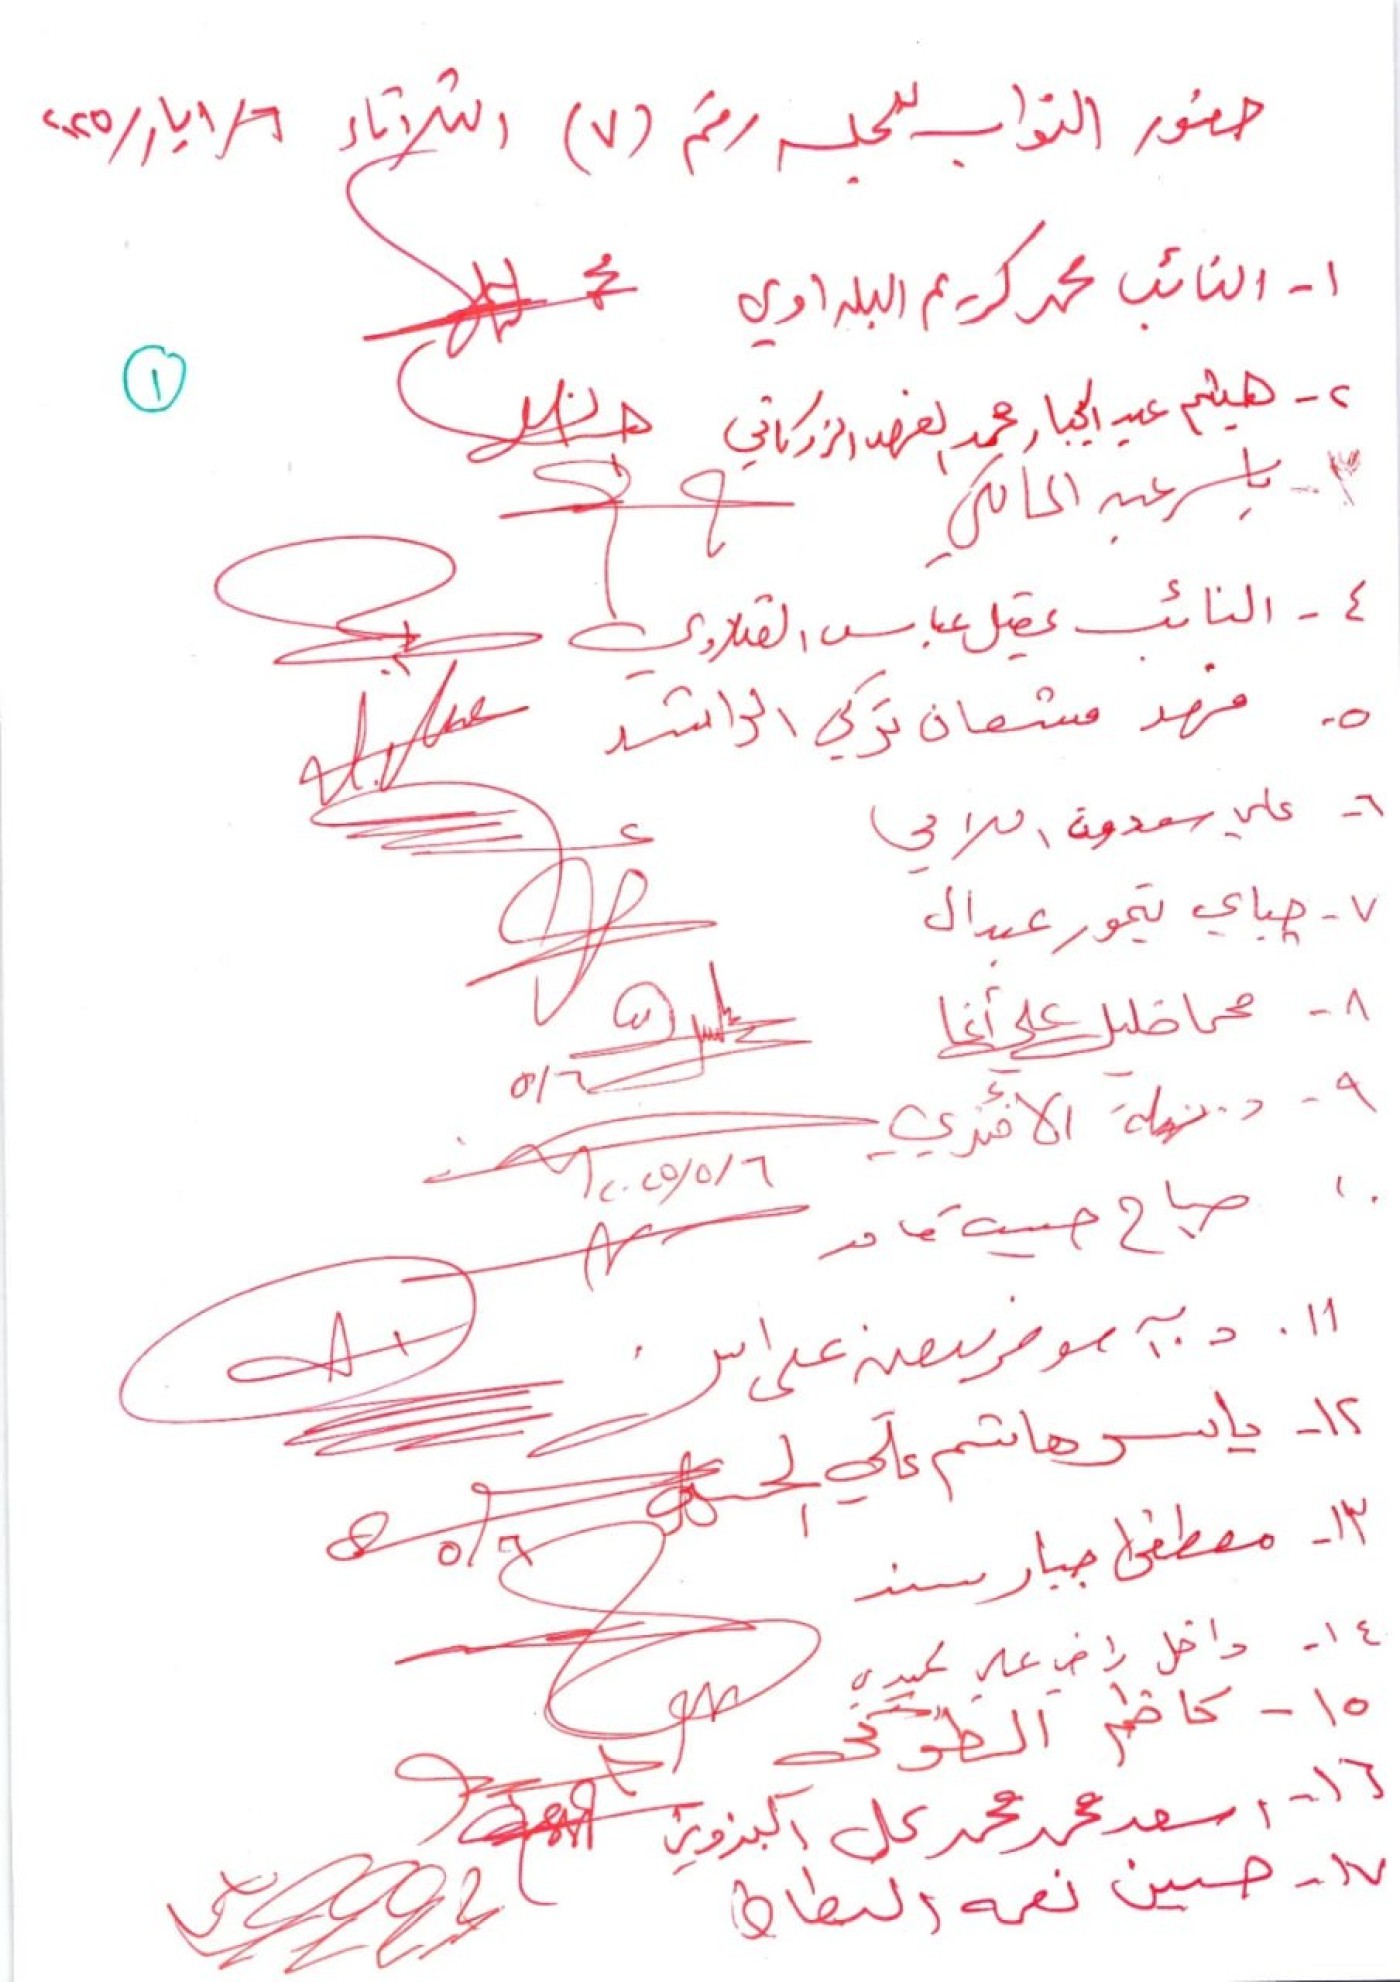 حضور النواب للجلسه رقم (٧) الثلاثاء ٦/ايار/٢٠٢٥
١- النائب محمد كريم البلداوي
١
٢- هيثم عبد الجبار محمد الفهد الزركاني
٣- ياسر عبد المالكي
٤- النائب عقيل عباس الفتلاوي
٥- فهد مشعان تركي الراشد
٦- علي سعدون اللامي
٧- جياي تيمور عبدال
٨- محما خليل علي أغا
٥/٦
٩- د. نهلة الافندي
٢٠٢٥/٥/٦
١٠ صباح حسن
١١. د.
١٢- ياسر هاشم علي الحسيني
٥/٦
١٣- مصطفى جبار سند
١٤- داخل راضي علي
١٥- كاظم الطوكي
١٦- اسعد محمد محمد علي البزوني
١٧- حسين نعمه البطاط